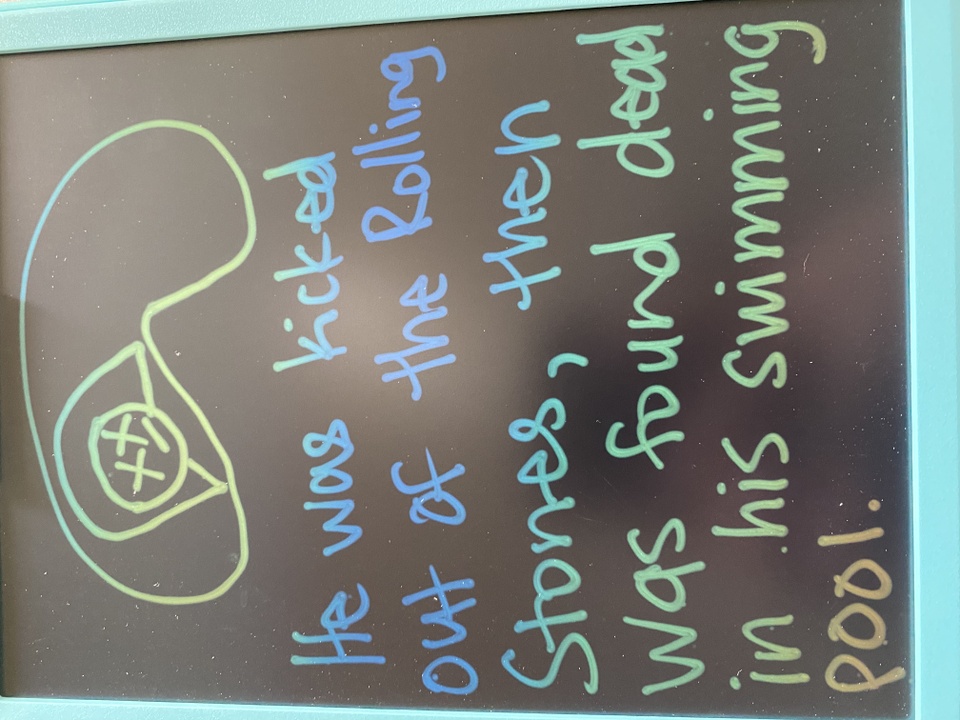 He was kicked
out of the Rolling
Stones, then
was found dead
in his swimming
pool.